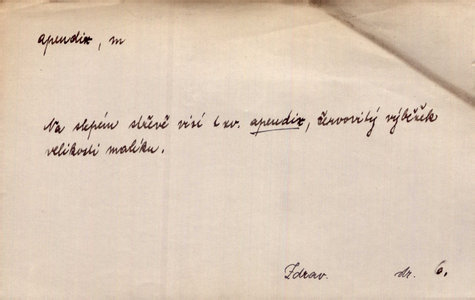 apendix, m
Na slepém střevě visí t.zv. apendix, červovitý výběžek
velikosti malíku.
Zdrav. str. 6.